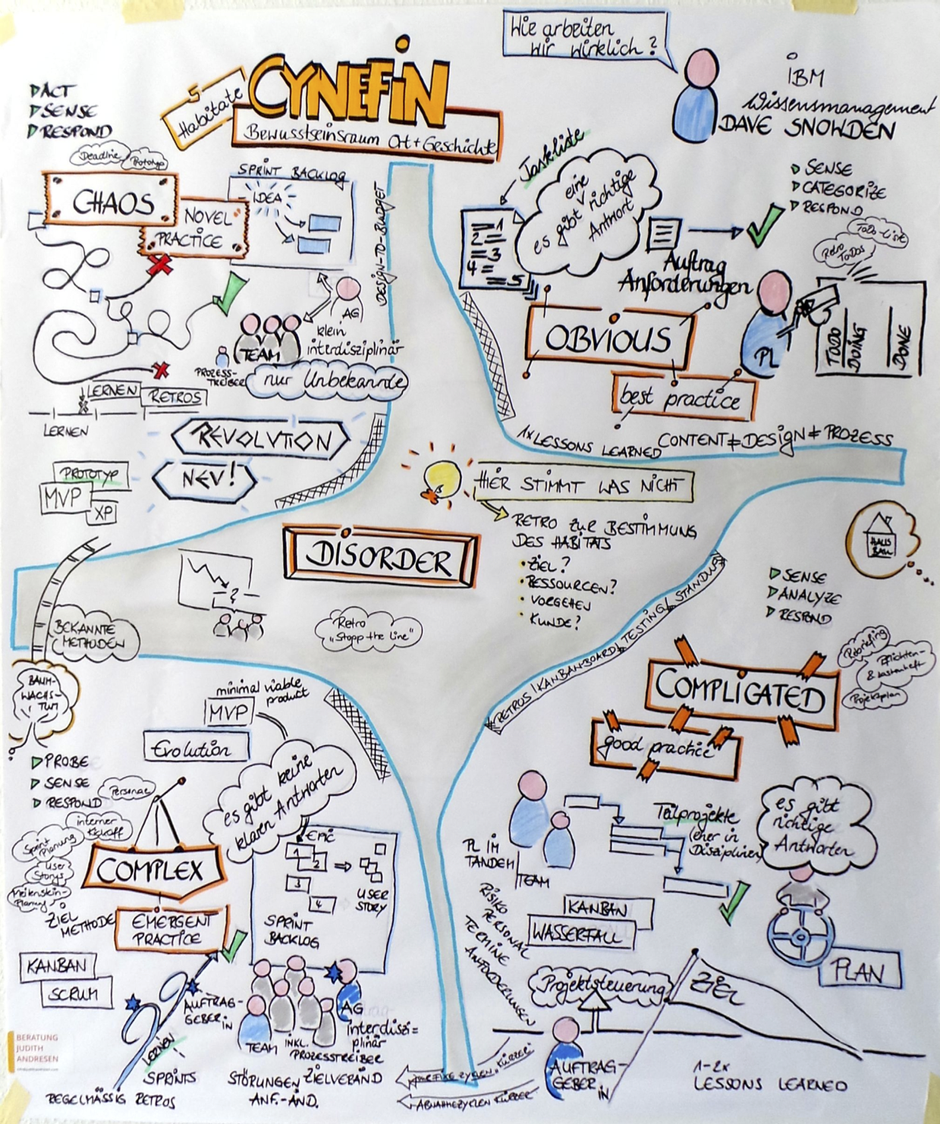 Wie arbeiten
wir wirklich?
IBM
Wissensmanagement
DAVE SNOWDEN
5
Habitate
CYNEFIN
Bewusstseinsraum Ort + Geschichte
ACT
SENSE
RESPOND
Deadline
Prototyp
CHAOS
NOVEL
PRACTICE
SPRINT BACKLOG
IDEA
DESIGN-TO-BUDGET
AG
klein
interdisziplinär
TEAM
PROZESS-
TREIBER
nur Unbekannte
LERNEN
RETROS
LERNEN
REVOLUTION
NEU!
PROTOTYP
MVP
XP
Taskliste
1
2
3
4
5
eine
es gibt richtige
Antwort
Auftrag
Anforderungen
SENSE
CATEGORIZE
RESPOND
ToDo-List
Retro
ToDos
OBVIOUS
best practice
PL
TODO
DOING
DONE
1x LESSONS LEARNED
CONTENT ≠ DESIGN ≠ PROZESS
HIER STIMMT WAS NICHT
RETRO ZUR BESTIMMUNG
DES HABITATS
ZIEL?
RESSOURCEN?
VORGEHEN
KUNDE?
DISORDER
?
Retro
"Stopp the Line"
BEKANNTE
METHODEN
RETROS | KANBANBOARD | TESTING | STANDUPS
HAUS
BAU
SENSE
ANALYZE
RESPOND
Rebriefing
Pflichten-
& Lastenheft
Projektplan
COMPLIGATED
good practice
PL IM
TANDEM
TEAM
Teilprojekte
eher in
Disziplinen
es gibt
richtige
Antworten
KANBAN
WASSERFALL
PLAN
RISIKO
PERSONAL
TERMINE
ANFORDERUNGEN
Projektsteuerung
ZIEL
AUFTRAG-
GEBER
IN
1-2x
LESSONS LEARNED
BAUM-
WACHS-
TUM
PROBE
SENSE
RESPOND
minimal viable
product
MVP
Evolution
es gibt keine
klaren Antworten
Personae
interner
Kickoff
Sprint
Planung
User
Storys
Meilenstein-
Planung
COMPLEX
EMERGENT
PRACTICE
ZIEL
METHODE
EPIC
1
2
3
4
USER
STORY
SPRINT
BACKLOG
KANBAN
SCRUM
AUFTRAG-
GEBER
IN
LERNEN
!
SPRINTS
REGELMÄSSIG RETROS
TEAM
INKL.
PROZESSTREIBER
AG
interdiszi=
plinär
STÖRUNGEN
ZIELVERÄND
ANF.-ÄND.
ABNAHMEZYKLEN KÜRZER
BERATUNG
JUDITH
ANDRESEN